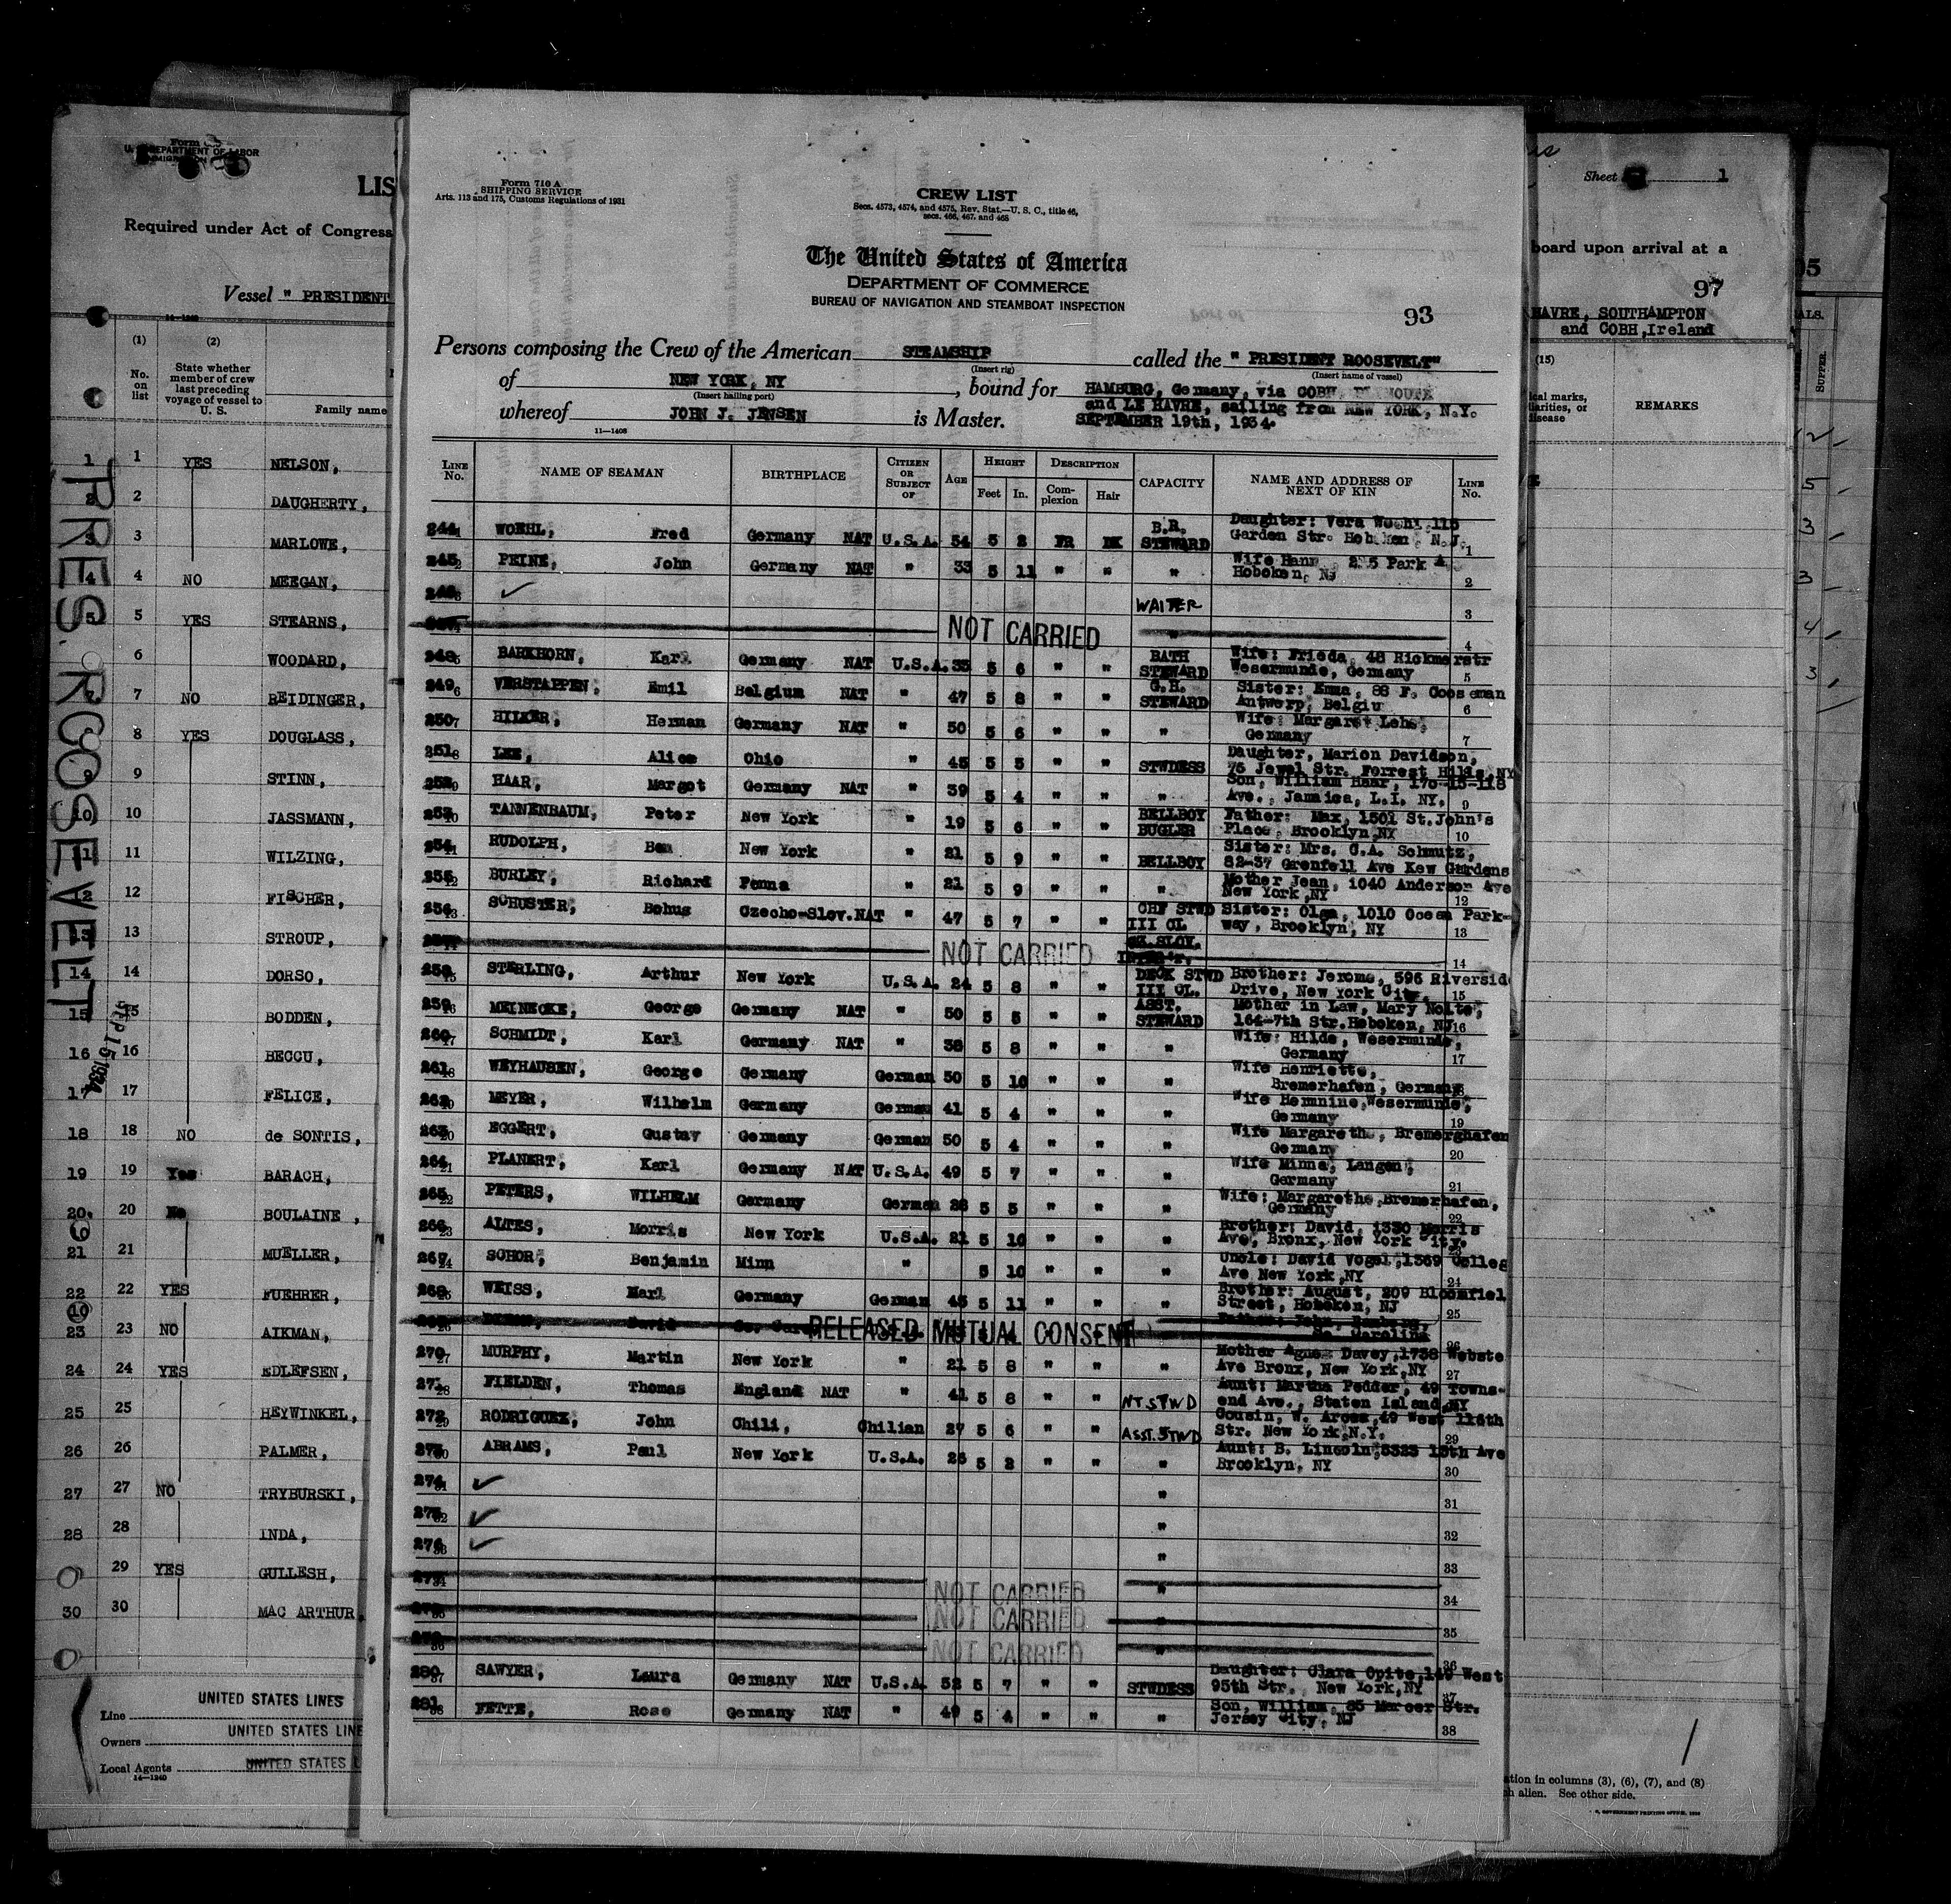 Form
U. S. DEPARTMENT OF LABOR
LIS
Required under Act of Congress
Vessel " PRESIDENT
(1) (2)
No. on list
State whether member of crew last preceding voyage of vessel to U. S.
Family name
1 1 YES NELSON,
2 2 DAUGHERTY,
3 3 MARLOWE,
4 4 NO MEEGAN,
5 5 YES STEARNS,
6 WOODARD,
7 NO REIDINGER,
8 YES DOUGLASS,
9 9 STINN,
10 10 JASSMANN,
11 11 WILZING,
12 12 FISCHER,
13 13 STROUP,
14 14 DORSO,
15 15 BODDEN,
16 16 BECCU,
17 17 FELICE,
18 18 NO de SONTIS,
19 19 Yes BARACH,
20 20 No BOULAINE ,
21 21 MUELLER,
22 22 YES FUEHRER,
23 23 NO AIKMAN,
24 24 YES EDLEFSEN,
25 25 HEYWINKEL,
26 26 PALMER,
27 27 NO TRYBURSKI,
28 28 INDA,
29 29 YES GULLESH,
30 30 MAC ARTHUR,
PRES. ROOSEVELT
SEP 15 1934
Line UNITED STATES LINES
Owners UNITED STATES LINE
Local Agents UNITED STATES L
14—1240
Form 710 A
SHIPPING SERVICE
Arts. 113 and 175, Customs Regulations of 1931
CREW LIST
Secs. 4573, 4574, and 4575, Rev. Stat.—U. S. C., title 46,
secs. 466, 467, and 468
The United States of America
DEPARTMENT OF COMMERCE
BUREAU OF NAVIGATION AND STEAMBOAT INSPECTION
93
Persons composing the Crew of the American STEAMSHIP called the " PRESIDENT ROOSEVELT"
(Insert rig) (Insert name of vessel)
of NEW YORK, NY , bound for HAMBURG, Germany, via COBH,
(Insert hailing port)
and LE HAVRE, sailing from NEW YORK, N.Y.
whereof JOHN J. JENSEN is Master. SEPTEMBER 19th, 1934.
11—1408
LINE No. NAME OF SEAMAN BIRTHPLACE CITIZEN OR SUBJECT OF AGE HEIGHT Feet In. DESCRIPTION Complexion Hair CAPACITY NAME AND ADDRESS OF NEXT OF KIN LINE No.
244 WOEHL, Fred Germany NAT U.S.A. 54 5 2 FR DK B.R. STEWARD Daughter: Vera 115 Garden Str. N.J. 1
245 PEINE, John Germany NAT " 33 5 11 " " " Wife Park Hoboken, NJ 2
246 ✓ WAITER 3
NOT CARRIED " 4
248 BARKHORN, Karl Germany NAT U.S.A. 33 5 6 " " BATH STEWARD Wife: Frieda, 48 Rickmerstr Wesermunde, Germany 5
249 VERSTAPPEN, Emil Belgium NAT " 47 5 8 " " STEWARD Sister: Emma, 88 F. Cooseman Antwerp, Belgiu 6
250 HILKER, Herman Germany NAT " 50 5 6 " " " Wife: Margaret Lehe, Germany 7
251 LEE, Alice Ohio " 45 5 5 " " STWDESS Daughter, Marion Davidson, 75 Jewel Str. Forrest Hills, NY
252 HAAR, Margot Germany NAT " 39 5 4 " " " Son, William Haar, 170-15-118 Ave., Jamaica, L.I. NY. 9
253 TANNENBAUM, Peter New York " 19 5 6 " " BELLBOY BUGLER Father: Max, 1501 St.John's Place, Brooklyn,NY 10
254 RUDOLPH, Ben New York " 21 5 9 " " BELLBOY Sister: Mrs. C.A. Schmutz, 82-37 Grenfell Ave Kew Gardens
255 BURLEY, Richard Penna " 21 5 9 " " " Mother Jean, 1040 Anderson Ave New York,NY 12
256 SCHUSTER, Bohus Czecho-Slov.NAT " 47 5 7 " " CHF STWD III CL Sister: Olga, 1010 Ocean Parkway, Brooklyn, NY 13
NOT CARRIED 14
258 STERLING, Arthur New York U.S.A. 24 5 8 " " DECK STWD III CL. Brother: Jerome, 596 Riversid Drive, New York City. 15
259 MEINECKE, George Germany NAT " 50 5 5 " " ASST. STEWARD Mother in Law, Mary Nolte, 164-7th Str.Hoboken, NJ 16
260 SCHMIDT, Karl Germany NAT " 38 5 8 " " " Wife: Hilde, Wesermunde, Germany 17
261 WEYHAUSEN, George Germany German 50 5 10 " " " Wife Henriette, Bremerhafen, Germany
262 MEYER, Wilhelm Germany German 41 5 4 " " " Wife Hemnine,Wesermunde, Germany 19
263 EGGERT, Gustav Germany German 50 5 4 " " " Wife Margarethe, Bremerghafen Germany 20
264 PLANERT, Karl Germany NAT U.S.A. 49 5 7 " " " Wife Minna, Langen, Germany 21
265 PETERS, WILHELM Germany German 5 5 " " " Wife: Margarethe,Bremerhafen, Germany 22
266 ALTES, Morris New York U.S.A. 21 5 10 " " " Brother: David, 1330 Morris Ave, Bronx, New York City.
267 SCHOR, Benjamin Minn " 5 10 " " " Uncle: David Vogel,1369 Colleg Ave New York,NY 24
268 WEISS, Germany German 45 5 11 " " " Brother: August, 209 Bloomfiel Street, Hoboken, NJ 25
RELEASED MUTUAL CONSENT
270 MURPHY, Martin New York " 21 5 8 " " " Mother Agnes Davey,1738 Webste Ave Bronx, New York,NY 27
271 FIELDEN, Thomas England NAT " 41 5 8 " " NT STWD Aunt: Martha Pedder, 49 Townsend Ave., Staten Island,NY
272 RODRIGUEZ, John Chili, Chilian 27 5 6 " " ASST. STWD Cousin, W. Arces,49 West 116th Str. New York,N.Y. 29
273 ABRAMS, Paul New York U.S.A. 5 " " " Aunt: B. Lincoln, Ave Brooklyn, NY 30
274 ✓ " 31
275 ✓ " 32
276 ✓ " 33
NOT CARRIED " 34
NOT CARRIED " 35
NOT CARRIED " 36
280 SAWYER, Laura Germany NAT U.S.A. 52 5 7 " " STWDESS Daughter: Clara West 95th Str., New York,NY 37
281 FETTE, Rose Germany NAT " 5 4 " " " Son, William, 85 Mercer Str. Jersey City, NJ 38
Sheet 1
board upon arrival at a
97
HAVRE, SOUTHAMPTON
and COBH,Ireland
(15)
REMARKS
SUPPER
ation in columns (3), (6), (7), and (8)
alien. See other side.